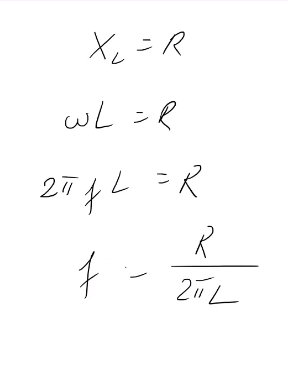 X_L = R
ωL = R
2πfL = R
f = R / 2πL